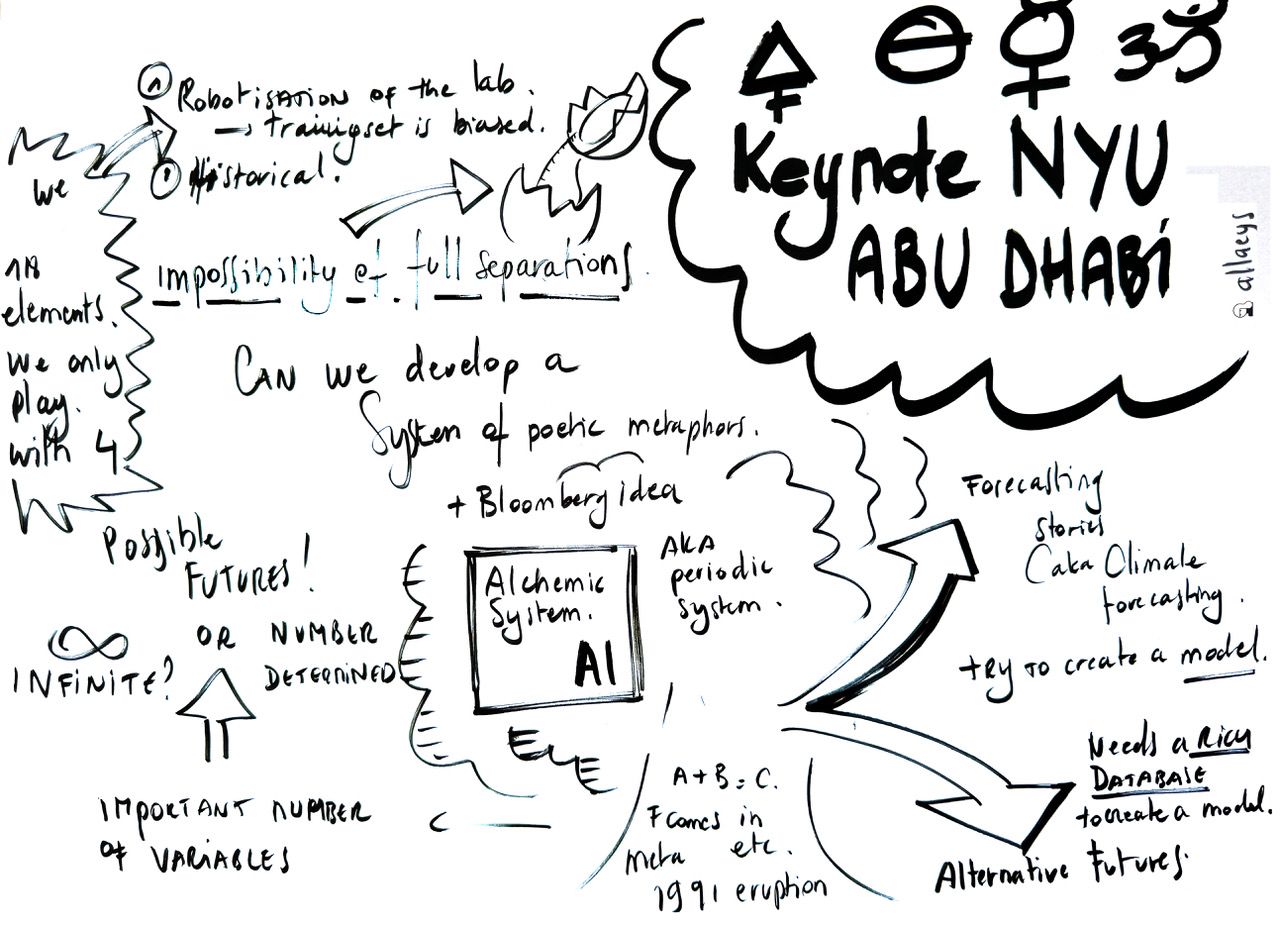 Keynote NYU
ABU DHABi
@allaeys
① Robotisation of the lab.
→ trainingset is biased.
Historical.
we
elements.
we only
play.
with 4
impossibility of full separations.
CAN we develop a
System of poetic metaphors.
+ Bloomberg idea
Possible
FUTURES!
∞
INFINITE?
OR NUMBER
DETERMINED
Alchemic
System.
AI
AKA
periodic
system.
Forecasting
stories
(aka Climate
forecasting.
+ try to create a model.
Needs a RICH
DATABASE
to create a model.
Alternative futures.
IMPORTANT NUMBER
of VARIABLES
A+B=C.
F comes in
meta etc.
1991 eruption